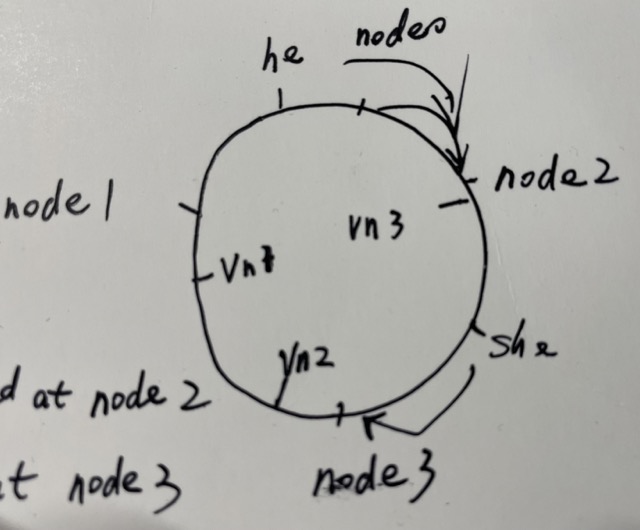 he nodes
node 1
node 2
vn 3
Vn
she
vn2
d at node 2
at node 3
node 3